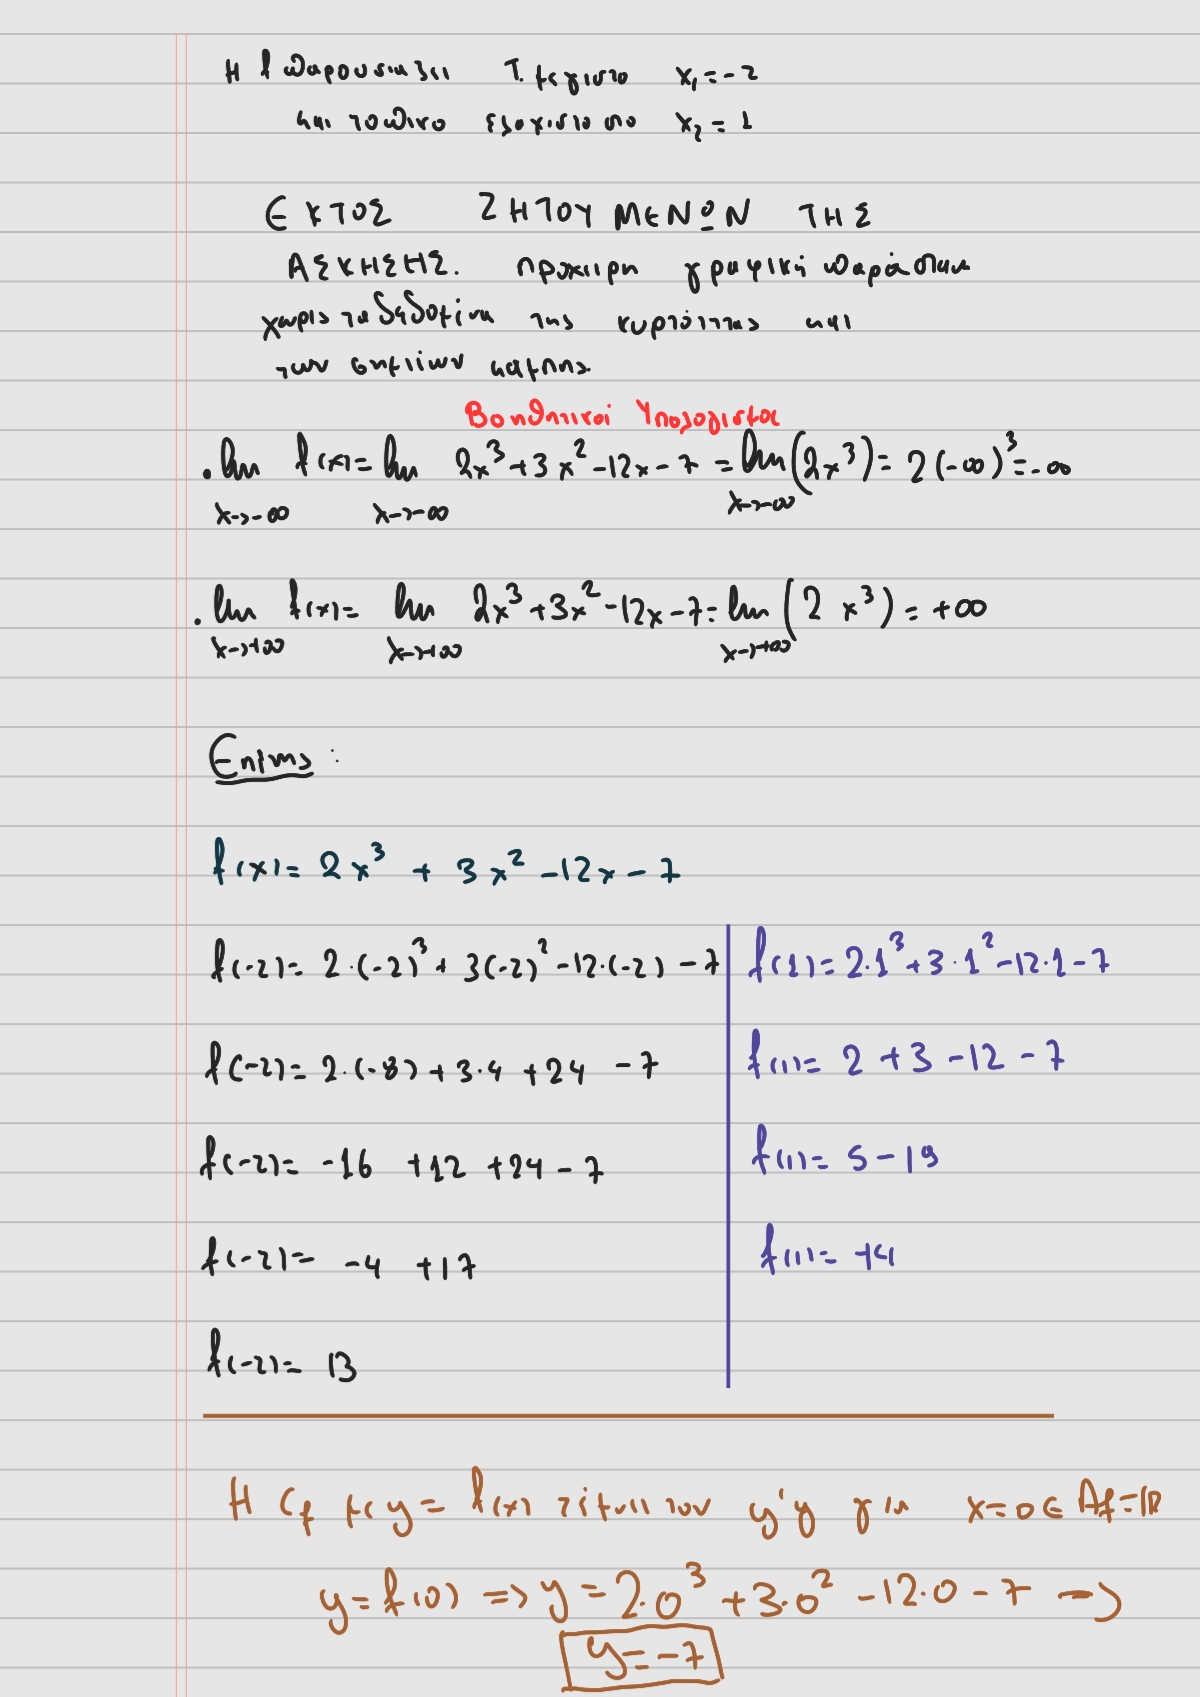 Η f παρουσιάζει Τ. μεγιστο x₁=-2
και τοπικο ελαχιστο στο x₂=1
ΕΚΤΟΣ ΖΗΤΟΥΜΕΝΩΝ ΤΗΣ
ΑΣΚΗΣΗΣ. προχειρη γραφική παράσταση
χωρις τα δεδομένα της κυρτότητας και
των σημείων καμπης.
Βοηθητικοί Υπολογισμοι
• lim f(x)= lim 2x³+3x²-12x-7 = lim (2x³)= 2(-∞)³=-∞
x→-∞ x→-∞ x→-∞
• lim f(x)= lim 2x³+3x²-12x-7= lim (2x³)=+∞
x→+∞ x→+∞ x→+∞
Επίσης :
f(x)= 2x³ + 3x² -12x - 7
f(-2)= 2·(-2)³+ 3(-2)² -12·(-2) -7
f(-2)= 2·(-8)+3·4 +24 -7
f(-2)= -16 +12 +24-7
f(-2)= -4 +17
f(-2)= 13
f(1)=2·1³+3·1²-12·1-7
f(1)= 2 +3 -12 -7
f(1)= 5-19
f(1)= -14
Η Cf με y= f(x) τέμνει τον y'y για x=0∈Af=ℝ
y=f(0) => y=2·0³+3·0²-12·0-7 =>
y=-7